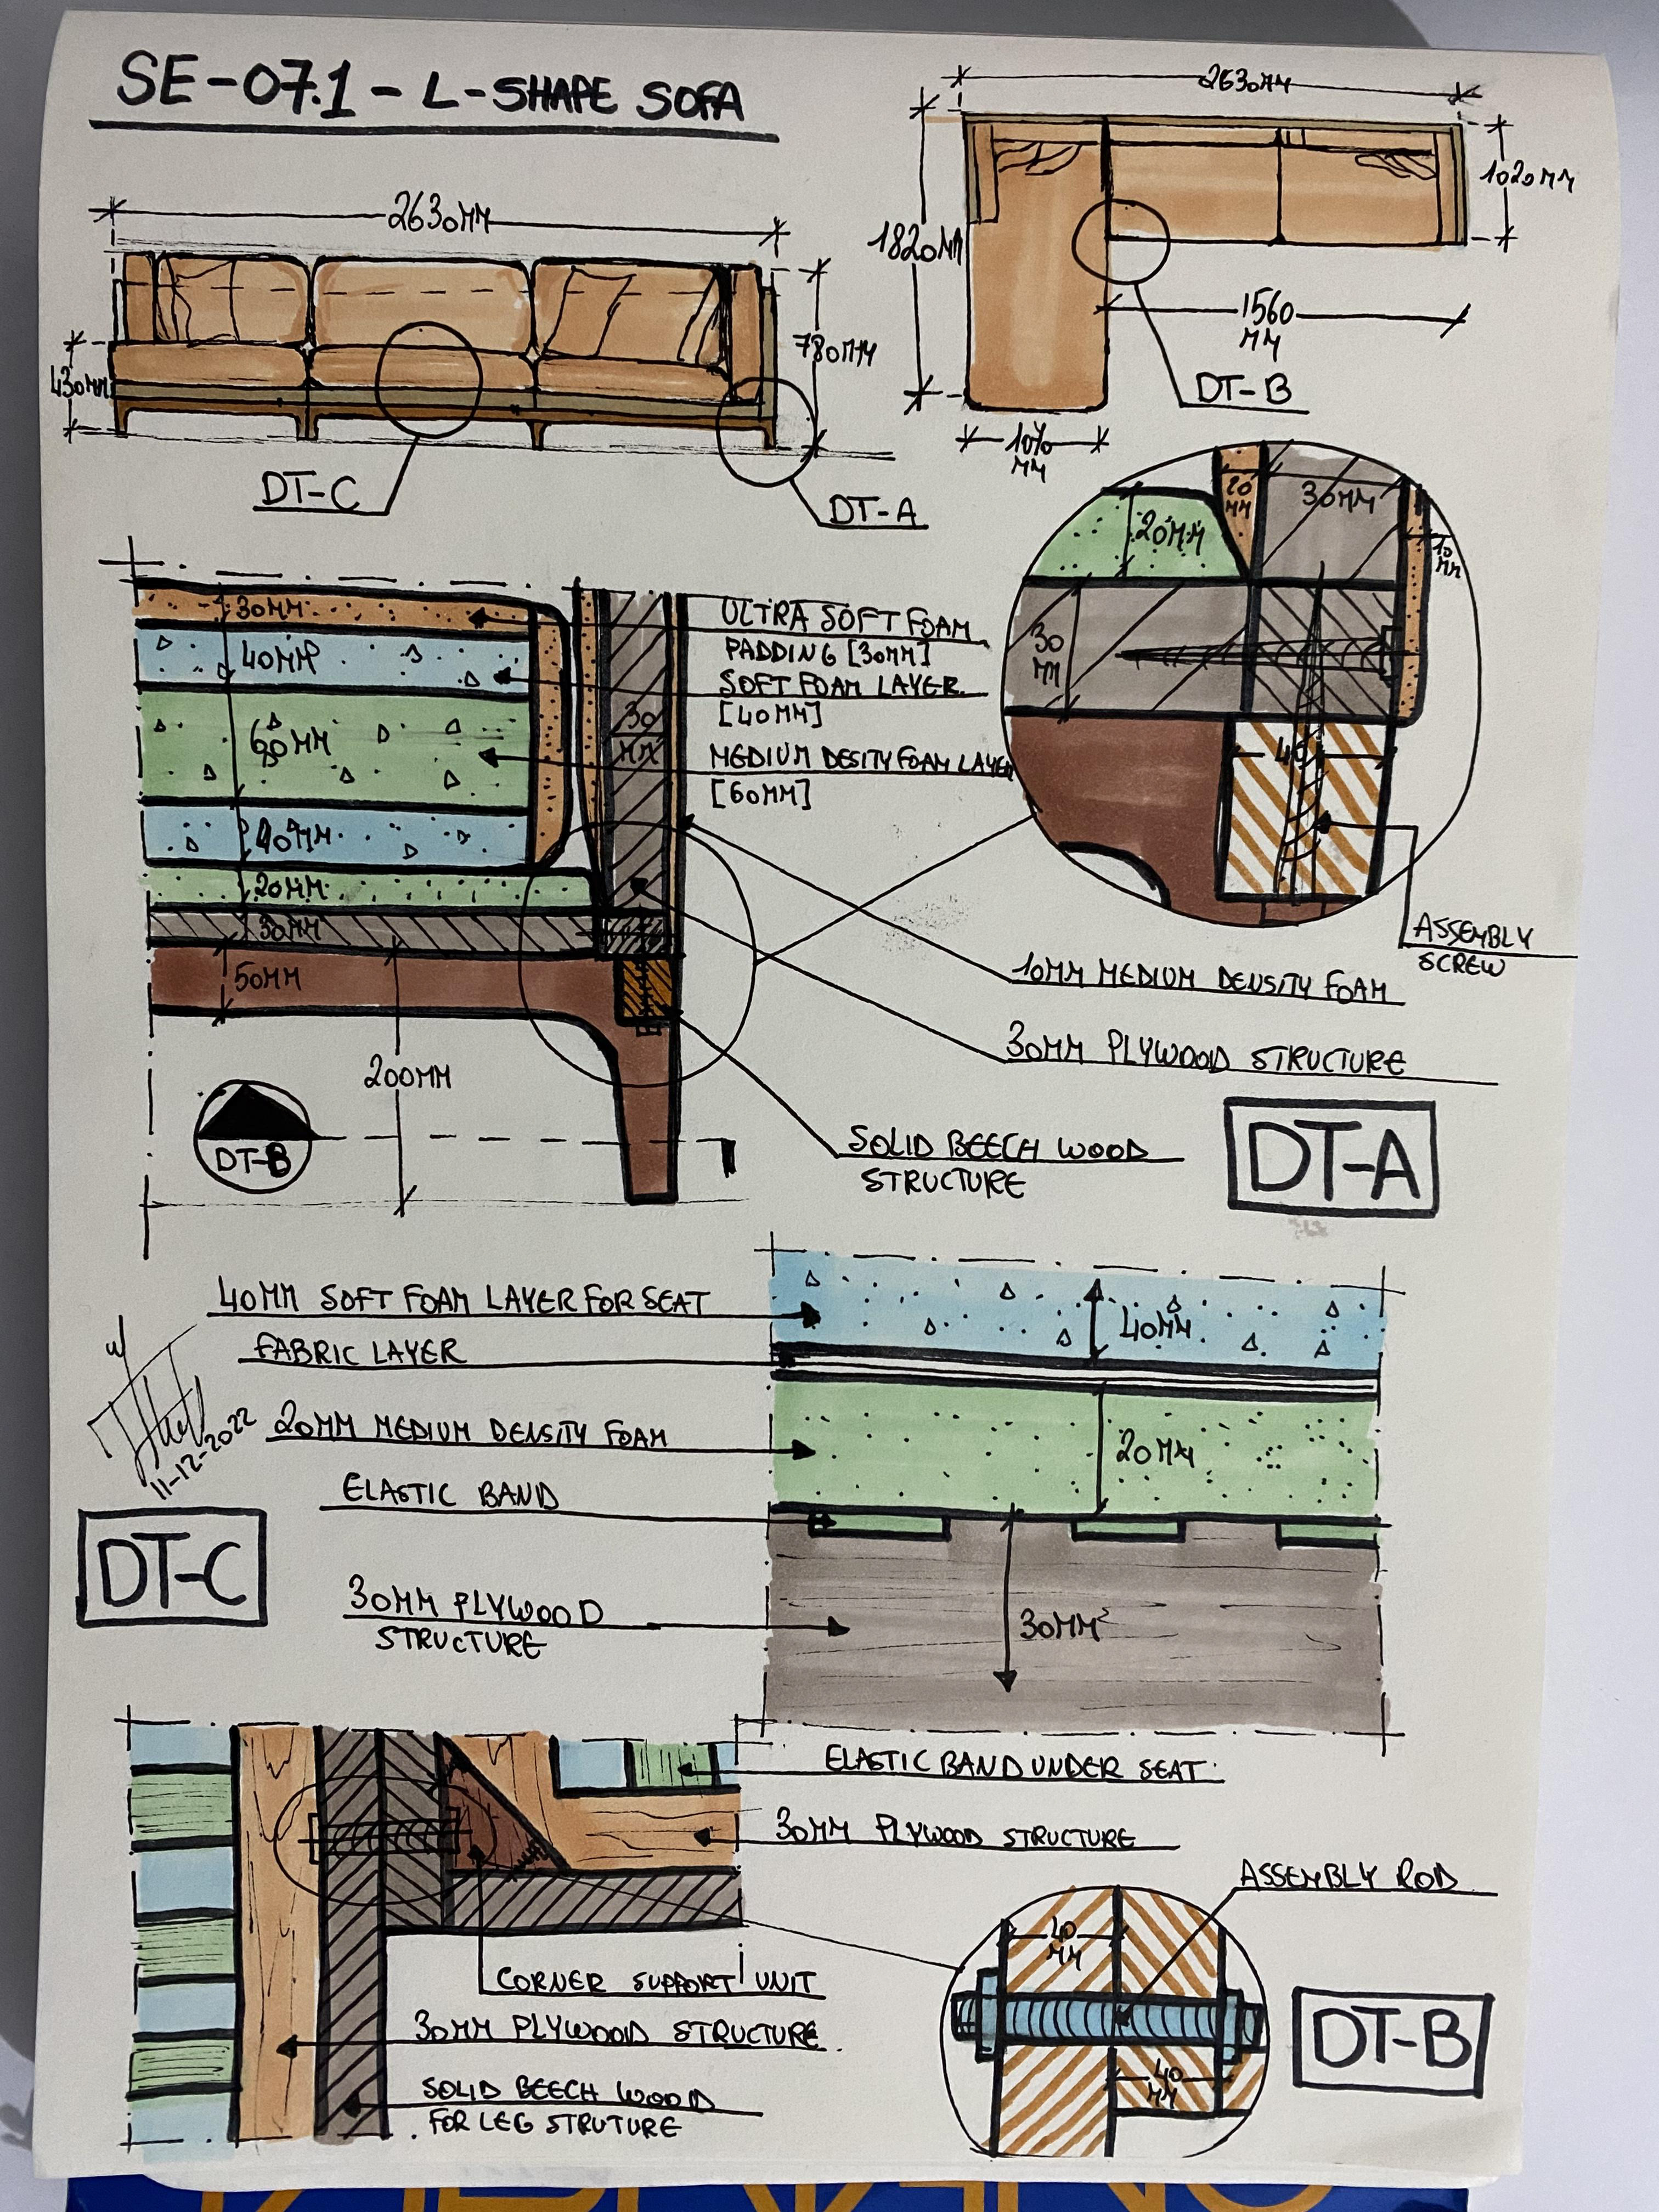 SE-07.1 - L-SHAPE SOFA
2630MM
2630MM
1020MM
1820MM
1560
MM
DT-B
MM
430MM
780MM
DT-C
DT-A
20
MM
30MM
20MM
10
MM
30
MM
40
ASSEMBLY
SCREW
30MM
40MM
60MM
40MM
20MM
30MM
50MM
200MM
30
MM
ULTRA SOFT FOAM
PADDING [30MM]
SOFT FOAM LAYER
[40MM]
MEDIUM DESITY FOAM LAYER
[60MM]
10MM MEDIUM DENSITY FOAM
30MM PLYWOOD STRUCTURE
SOLID BEECH WOOD
STRUCTURE
DT-B
DT-A
40MM SOFT FOAM LAYER FOR SEAT
FABRIC LAYER
20MM MEDIUM DENSITY FOAM
ELASTIC BAND
30MM PLYWOOD
STRUCTURE
40MM
20MM
30MM²
11-12-2022
DT-C
ELASTIC BAND UNDER SEAT
30MM PLYWOOD STRUCTURE
ASSEMBLY ROD
CORNER SUPPORT UNIT
30MM PLYWOOD STRUCTURE
SOLID BEECH WOOD
FOR LEG STRUTURE
40
MM
40
MM
DT-B